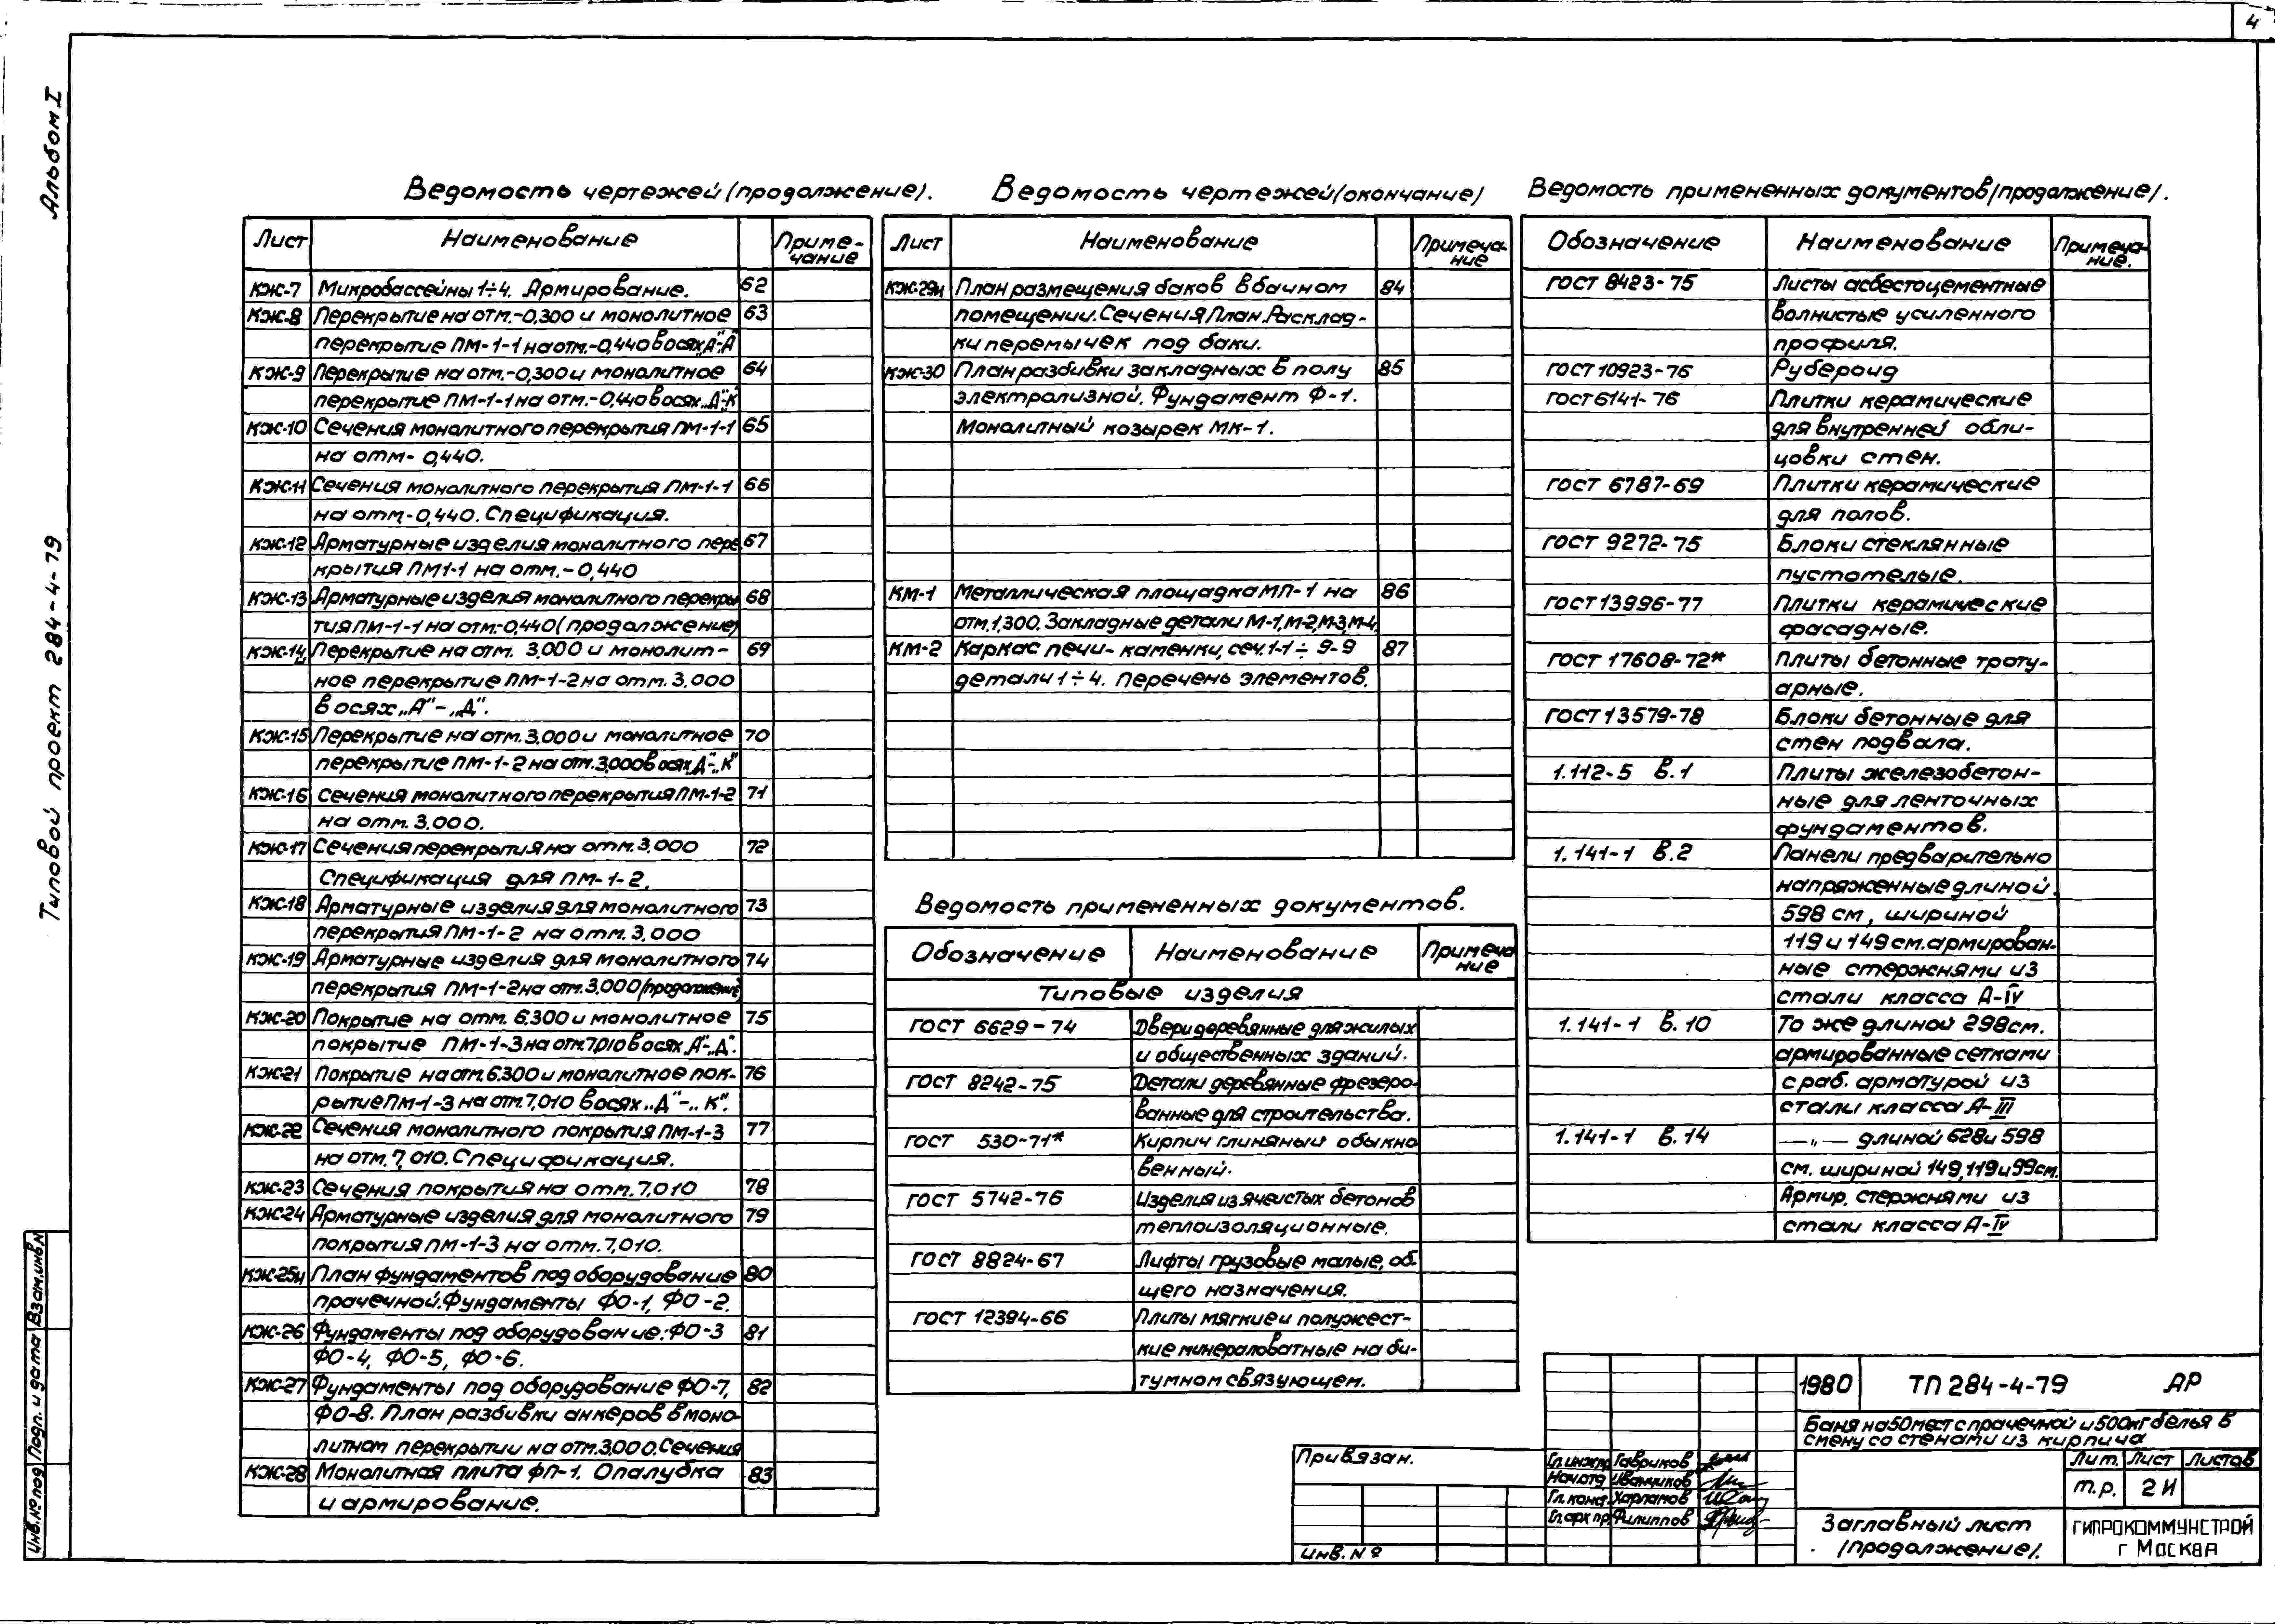 4
Альбом I
Типовой проект 284-4-79
Взам.инв.N
Подп. и дата
Инв.№под
Ведомость чертежей (продолжение).
Лист Наименование Приме-
чание
КЖ-7 Микробассейны 1÷4. Армирование. 62
КЖ-8 Перекрытие на отм.-0,300 и монолитное 63
перекрытие ПМ-1-1 на отм.-0,440 в осях „А"-„Д"
КЖ-9 Перекрытие на отм.-0,300 и монолитное 64
перекрытие ПМ-1-1 на отм.-0,440 в осях „Д"-„К"
КЖ-10 Сечения монолитного перекрытия ПМ-1-1 65
на отм- 0,440.
КЖ-11 Сечения монолитного перекрытия ПМ-1-1 66
на отм,-0,440. Спецификация.
КЖ-12 Арматурные изделия монолитного пере 67
крытия ПМ1-1 на отм.-0,440
КЖ-13 Арматурные изделия монолитного перекры 68
тия ПМ-1-1 на отм.-0,440 (продолжение)
КЖ-14 Перекрытие на отм. 3,000 и монолит- 69
ное перекрытие ПМ-1-2 на отм. 3,000
в осях „А"-„Д".
КЖ-15 Перекрытие на отм. 3,000 и монолитное 70
перекрытие ПМ-1-2 на отм. 3,000 в осях „Д"-„К"
КЖ-16 Сечения монолитного перекрытия ПМ-1-2 71
на отм. 3,000.
КЖ-17 Сечения перекрытия на отм. 3,000 72
Спецификация для ПМ-1-2.
КЖ-18 Арматурные изделия для монолитного 73
перекрытия ПМ-1-2 на отм. 3,000
КЖ-19 Арматурные изделия для монолитного 74
перекрытия ПМ-1-2 на отм. 3,000 (продолжение)
КЖ-20 Покрытие на отм. 6,300 и монолитное 75
покрытие ПМ-1-3 на отм. 7,010 в осях „А"-„Д".
КЖ-21 Покрытие на отм. 6.300 и монолитное пок- 76
рытие ПМ-1-3 на отм. 7,010 в осях „Д"-„К".
КЖ-22 Сечения монолитного покрытия ПМ-1-3 77
на отм. 7,010. Спецификация.
КЖ-23 Сечения покрытия на отм. 7,010 78
КЖ-24 Арматурные изделия для монолитного 79
покрытия ПМ-1-3 на отм. 7,010.
КЖ-25И План фундаментов под оборудование 80
прачечной. Фундаменты ФО-1, ФО-2.
КЖ-26 Фундаменты под оборудование: ФО-3 81
ФО-4, ФО-5, ФО-6.
КЖ-27 Фундаменты под оборудование ФО-7, 82
ФО-8. План разбивки анкеров в моно-
литном перекрытии на отм. 3,000. Сечения
КЖ-28 Монолитная плита ФП-1. Опалубка 83
и армирование.
Ведомость чертежей (окончание)
Лист Наименование Примеча-
ние
КЖ-29И План размещения баков в бачном 84
помещении. Сечения План. Расклад-
ки перемычек под баки.
КЖ-30 План разбивки закладных в полу 85
электролизной. Фундамент Ф-1.
Монолитный козырек МК-1.
КМ-1 Металлическая площадка МП-1 на 86
отм. 1,300. Закладные детали М-1, М-2, М-3, М-4.
КМ-2 Каркас печи-каменки, сеч. 1-1 ÷ 9-9 87
детали 1÷4. перечень элементов.
Ведомость примененных документов.
Обозначение Наименование Примеча
ние
Типовые изделия
ГОСТ 6629-74 Двери деревянные для жилых
и общественных зданий.
ГОСТ 8242-75 Детали деревянные фрезеро-
ванные для строительства.
ГОСТ 530-71* Кирпич глиняный обыкно
венный.
ГОСТ 5742-76 Изделия из ячеистых бетонов
теплоизоляционные.
ГОСТ 8824-67 Лифты грузовые малые, об-
щего назначения.
ГОСТ 12394-66 Плиты мягкие и полужест-
кие минераловатные на би-
тумном связующем.
Ведомость примененных документов (продолжение).
Обозначение Наименование Примеча-
ние.
ГОСТ 8423-75 Листы асбестоцементные
волнистые усиленного
профиля.
ГОСТ 10923-76 Рубероид
ГОСТ 6141-76 Плитки керамические
для внутренней обли-
цовки стен.
ГОСТ 6787-69 Плитки керамические
для полов.
ГОСТ 9272-75 Блоки стеклянные
пустотелые.
ГОСТ 13996-77 Плитки керамические
фасадные.
ГОСТ 17608-72* Плиты бетонные троту-
арные.
ГОСТ 13579-78 Блоки бетонные для
стен подвала.
1.112-5 в.1 Плиты железобетон-
ные для ленточных
фундаментов.
1.141-1 в.2 Панели предварительно
напряженные длиной
598 см, шириной
119 и 149 см. армирован-
ные стержнями из
стали класса А-IV
1.141-1 в.10 То же длиной 298см.
армированные сетками
с раб. арматурой из
стали класса А-III
1.141-1 в.14 —„— длиной 628 и 598
см. шириной 149, 119 и 99 см.
Армир. стержнями из
стали класса А-IV
Привязан.
Инв. №
Гл.инж.пр. Гавриков
Нач.отд. Иванчиков
Гл.конс. Харламов
Гл.арх.пр. Филиппов
1980 ТП 284-4-79 АР
Баня на 50 мест с прачечной и 500кг белья в
смену со стенами из кирпича
Лит. Лист Листов
т.р. 2И
Заглавный лист
(продолжение).
ГИПРОКОММУНСТРОЙ
г Москва